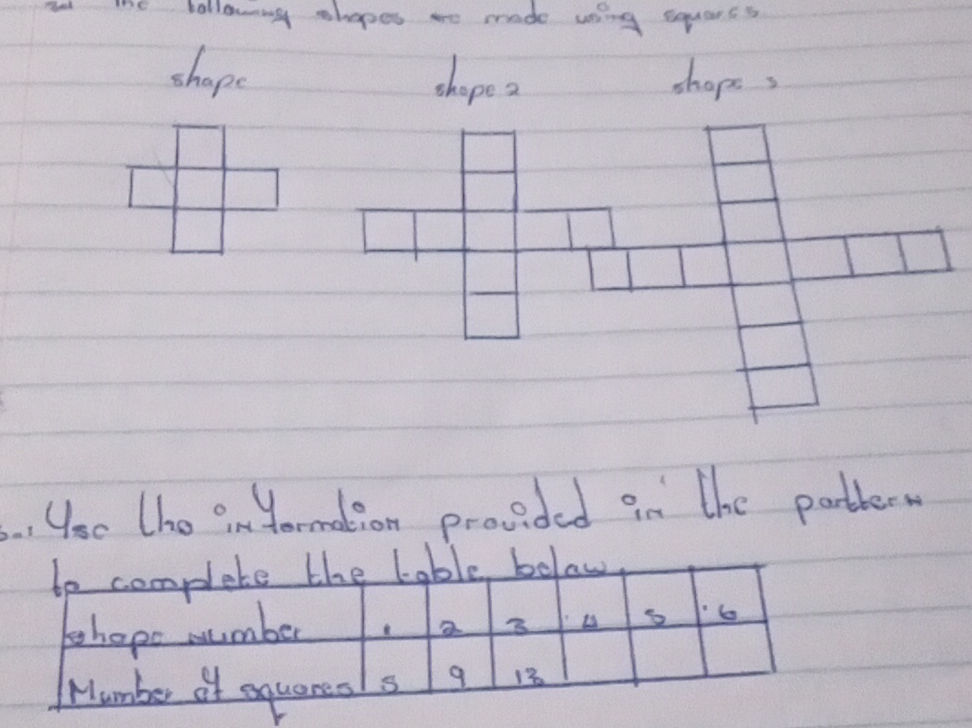 the following shapes are made using squares
shape shape 2 shape 3
Use the information provided in the parttern
to complete the table below
shape number 1 2 3 4 5 6
Number of squares 5 9 13